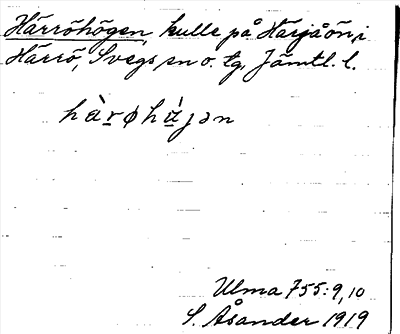 Härröhögen, kulle på Härjåön, i
Härrö, Svegs sn o. tg, Jämtl. l.
hàrøhájən
Ulma 755:9,10
S. Åsander 1919